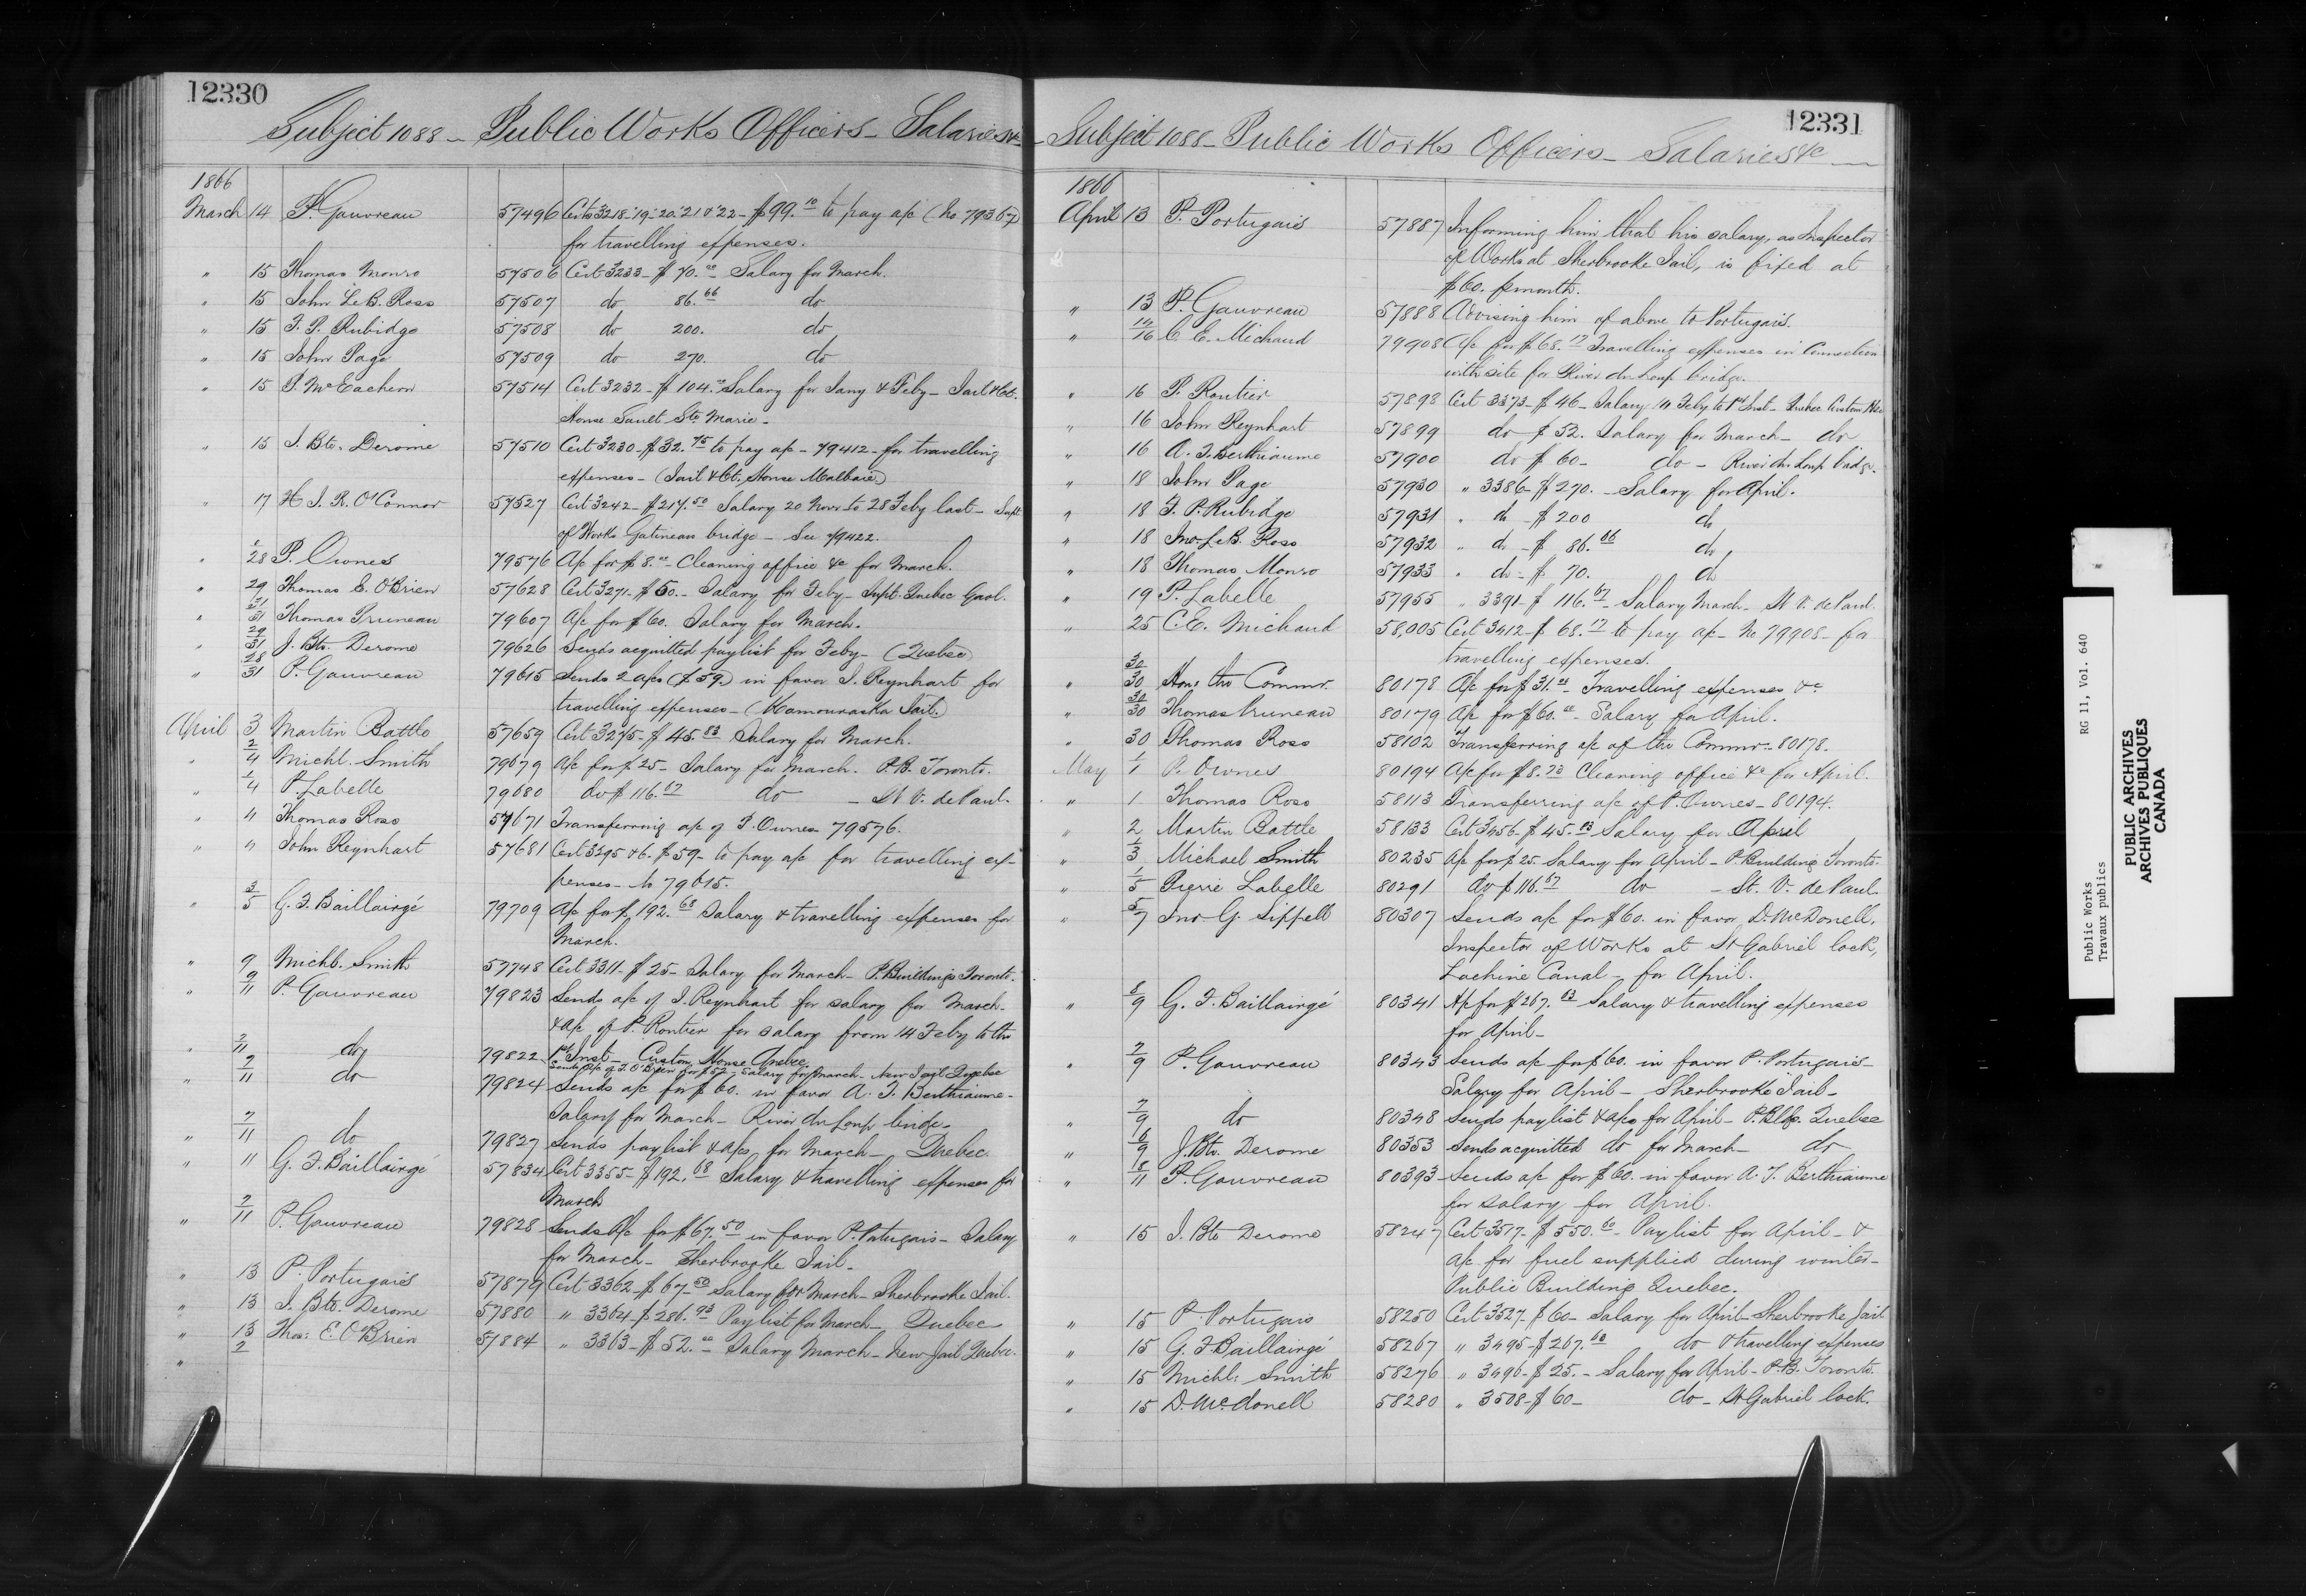 12330
Subject 1088 – Public Works Officers – Salaries &c
1866
March 14 P. Gauvreau 57496 Certs 3218·19·20·21 & 22 – $99.10 to pay a/c (No 79367)
for travelling expenses.
" 15 Thomas Monro 57506 Cert 3233 – $70.00 Salary for March.
" 15 John LeB. Ross 57507 do 86.66 do
" 15 F. P. Rubidge 57508 do 200. do
" 15 John Page 57509 do 270. do
" 15 P. McEachern 57514 Cert 3232 – $104.00 Salary for Jany & Feby – Jail & Ct.
House Sault Ste Marie –
" 15 J. Bte. Derome 57510 Cert 3230 – $32.75 to pay a/c – 79412 – for travelling
expenses – (Jail & Ct. House Malbaie)
" 17 H. J. R. O'Connor 57527 Cert 3242 – $217.50 Salary 20 Novr to 28 Feby last – Supt
of Works Gatineau bridge – See 79422.
" 1/28 P. Ownes 79576 A/c for $8.00 – Cleaning office &c for March.
" 29 Thomas E. O'Brien 57628 Cert 3271 – $50. – Salary for Feby – Supt. Quebec Gaol.
" 31/31 Thomas Pruneau 79607 A/c for $60. Salary for March.
" 29/31 J. Bte. Derome 79626 Sends acquitted paylist for Feby – (Quebec)
" 28/31 P. Gauvreau 79615 Sends 2 a/cs ($59.) in favor J. Reynhart for
travelling expenses – (Kamouraska Jail.)
April 3 Martin Battle 57659 Cert 3275 – $45.83 Salary for March.
" 2/4 Michl. Smith 79679 A/c for $25 – Salary for March. P.B. Toronto.
" 1/4 P. Labelle 79680 do $116.67 do – St V. de Paul.
" 4 Thomas Ross 57671 Transferring a/c of P. Ownes 79576.
" 4 John Reynhart 57681 Cert 3295 & 6. $59 – to pay a/c for travelling ex-
penses – No 79615.
" 3/5 G. F. Baillairgé 79709 A/c for $192.68 Salary & travelling expenses for
March.
" 9 Michl. Smith 57748 Cert 3311 – $25 – Salary for March – P. Buildings Toronto.
" 9/11 P. Gauvreau 79823 Sends a/c of J. Reynhart for salary for March –
& a/c of P. Rontier for salary from 14 Feby to the
1st Inst – Custom House Quebec
" 7/11 do 79822 Sends a/c of T. O'Brien for $52 – Salary for March – New Jail Quebec
" 7/11 do 79824 Sends a/c for $60. in favor A. T. Berthiaume –
Salary for March – River du Loup bridge –
" 7/11 do 79827 Sends paylist & a/cs for March – Quebec
" 11 G. F. Baillairgé 57834 Cert 3355 – $192.68 Salary & travelling expenses for
March
" 7/11 P. Gauvreau 79828 Sends a/c for $67.50 in favor P. Portugais – Salary
for March – Sherbrooke Jail –
" 13 P. Portugais 57879 Cert 3362 – $67.50 Salary for March – Sherbrooke Jail.
" 13 J. Bte. Derome 57880 " 3364 – $286.93 Paylist for March – Quebec
" 13 Thos: E. O'Brien 57884 " 3363 – $52.00 – Salary March – New Jail Quebec.
" 2
12331
Subject 1088 – Public Works Officers – Salaries &c
1866
April 13 P. Portugais 57887 Informing him that his salary, as Inspector
of Works at Sherbrooke Jail, is fixed at
$60. p month.
" 13 P. Gauvreau 57888 Advising him of above to Portugais.
" 14/16 C. E. Michaud 79908 A/c for $68.17 Travelling expenses in connection
with site for River du Loup bridge.
" 16 P. Rontier 57898 Cert 3373 – $46 – Salary 14 Feby to 1st Inst – Quebec Custom Hse
" 16 John Reynhart 57899 do $52. Salary for March – do
" 16 A. T. Berthiaume 57900 do $60 – do – River du Loup bridge.
" 18 John Page 57930 " 3386 – $270. – Salary for April.
" 18 F. P. Rubidge 57931 " do – $200 do
" 18 Jno. LeB. Ross 57932 " do – $86.66 do
" 18 Thomas Monro 57933 " do – $70. do
" 19 P. Labelle 57955 " 3391 – $116.67 – Salary March – St V. de Paul
" 25 C. E. Michaud 58,005 Cert 3412 – $68.17 to pay a/c – No 79908 – for
travelling expenses.
" 30/30 Hon: the Commr. 80178 A/c for $31.21 – Travelling expenses &c
" 30/30 Thomas Pruneau 80179 A/c for $60.00 – Salary for April.
" 30 Thomas Ross 58102 Transferring a/c of the Commr – 80178.
May 1/1 P. Ownes 80194 A/c for $8.73 Cleaning office &c for April.
" 1 Thomas Ross 58113 Transferring a/c of P. Ownes – 80194.
" 2 Martin Battle 58133 Cert 3456 – $45.83 Salary for April
" 1/3 Michael Smith 80235 A/c for $25. Salary for April – P. Buildings Toronto.
" 1/5 Pierre Labelle 80291 do $116.67 do – St. V. de Paul.
" 5/7 Jno. G. Sippell 80307 Sends a/c for $60. in favor D. McDonell,
Inspector of Works at St Gabriel lock,
Lachine Canal – for April.
" 8/9 G. F. Baillairgé 80341 A/c for $267.63 Salary & travelling expenses
for April –
" 7/9 P. Gauvreau 80343 Sends a/c for $60. in favor P. Portugais –
Salary for April – Sherbrooke Jail –
" 7/9 do 80348 Sends paylist & a/cs for April – P. Bldgs. Quebec
" 8/9 J. Bte. Derome 80353 Sends acquitted do for March – do
" 8/11 P. Gauvreau 80393 Sends a/c for $60. in favor A. T. Berthiaume
for salary for April.
" 15 J. Bte Derome 58247 Cert 3517 – $550.60 – Paylist for April – &
a/c for fuel supplied during winter –
Public Building Quebec.
" 15 P. Portugais 58250 Cert 3527 – $60 – Salary for April – Sherbrooke Jail
" 15 G. F. Baillairgé 58267 " 3495 – $267.68 do & travelling expenses
" 15 Michl: Smith 58276 " 3496 – $25. – Salary for April – P.B. Toronto.
" 15 D. McDonell 58280 " 3508 – $60 – do – St Gabriel lock.
Public Works RG 11, Vol. 640
Travaux publics
PUBLIC ARCHIVES
ARCHIVES PUBLIQUES
CANADA